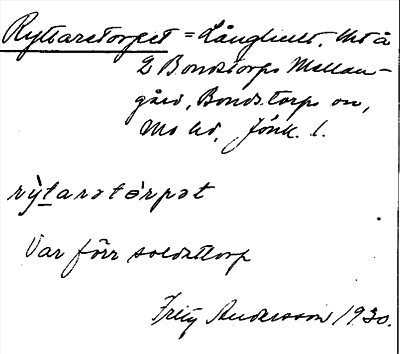 Ryttaretorpet = Långhult, ut å
2 Bondstorps Mellan-
gård, Bondstorps sn,
Mo hd, Jönk. l.
rỳtaratórpat
Var förr soldattorp
Fritz Andersson 1930.